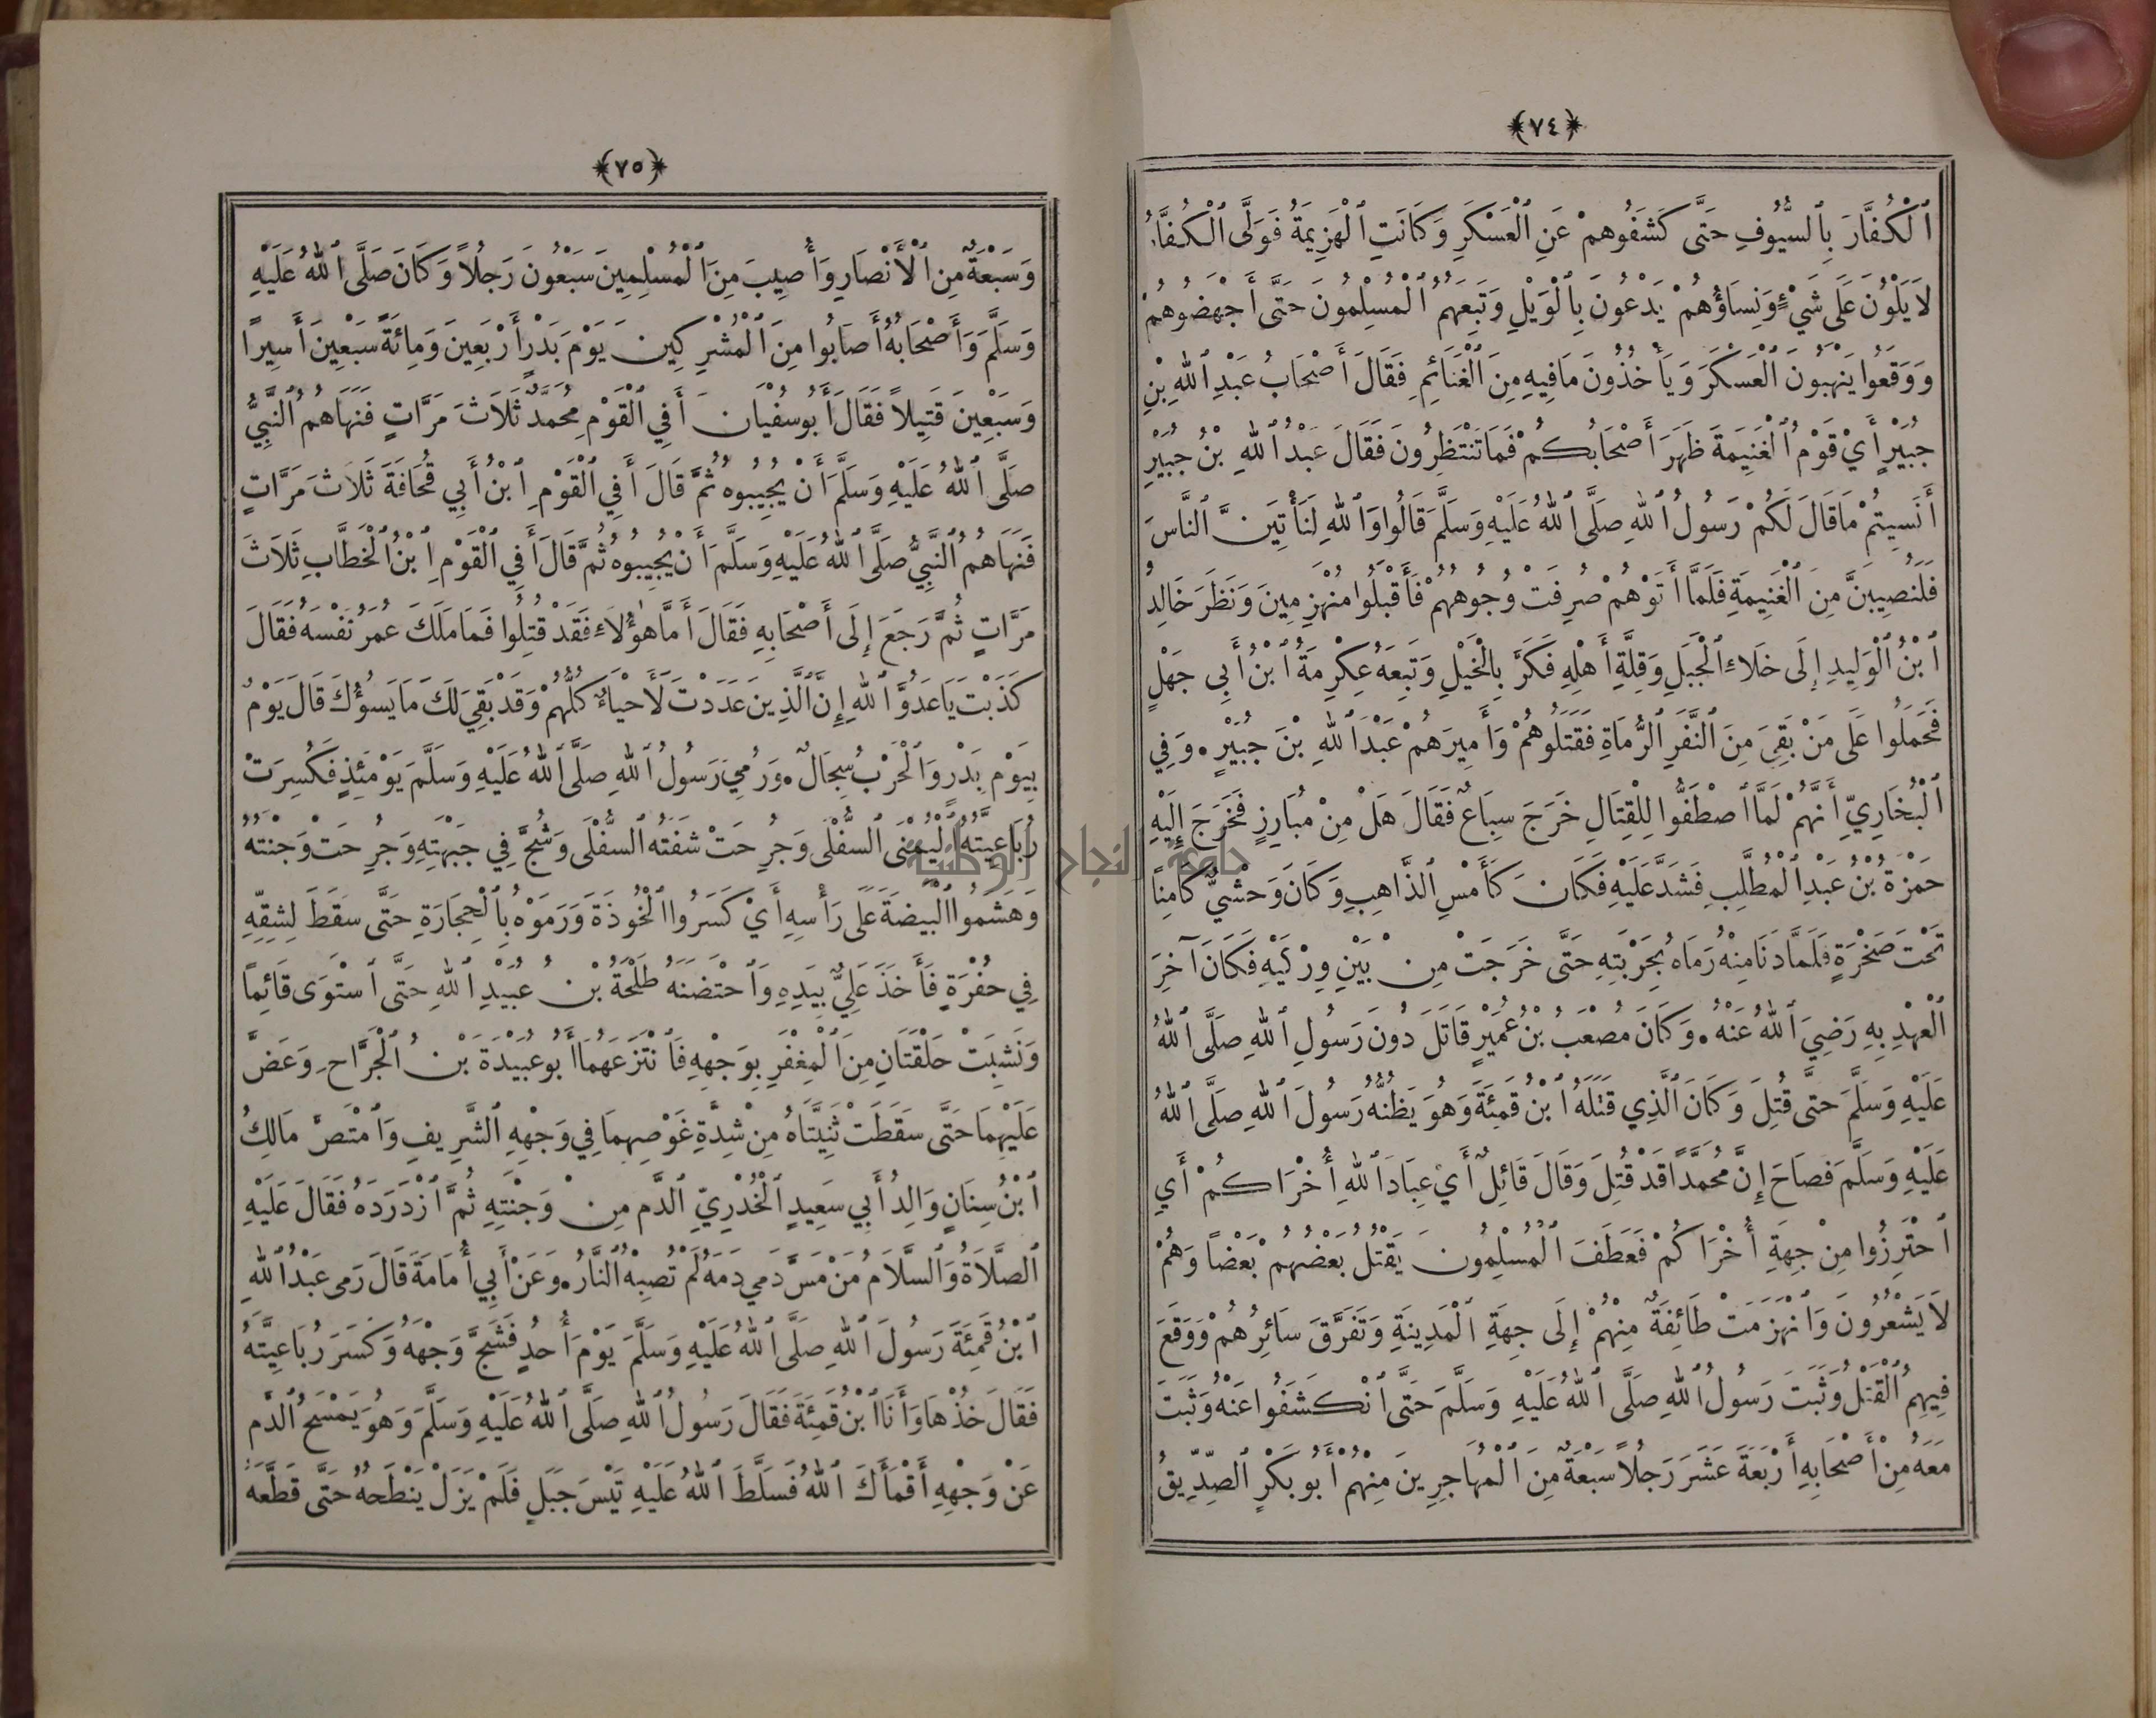 ﴿٧٤﴾
ٱلْكُفَّارَ بِٱلسُّيُوفِ حَتَّى كَشَفُوهُمْ عَنِ ٱلْعَسْكَرِ وَكَانَتِ ٱلْهَزِيمَةُ فَوَلَّى ٱلْكُفَّارُ
لاَ يَلْوُنَ عَلَى شَيْءٍ وَنِسَاؤُهُمْ يَدْعُونَ بِٱلْوَيْلِ وَتَبِعَهُمُ ٱلْمُسْلِمُونَ حَتَّى أَجْهَضُوهُمْ
وَوَقَعُوا يَنْهَبُونَ ٱلْعَسْكَرَ وَيَأْخُذُونَ مَا فِيهِ مِنَ ٱلْغَنَائِمِ فَقَالَ أَصْحَابُ عَبْدِ ٱللهِ بْنِ
جُبَيْرٍ أَيْ قَوْمُ ٱلْغَنِيمَةَ ظَهَرَ أَصْحَابُكُمْ فَمَا تَنْتَظِرُونَ فَقَالَ عَبْدُ ٱللهِ بْنُ جُبَيْرٍ
أَنَسِيتُمْ مَا قَالَ لَكُمْ رَسُولُ ٱللهِ صَلَّى ٱللهُ عَلَيْهِ وَسَلَّمَ قَالُوا وَٱللهِ لَنَأْتِيَنَّ ٱلنَّاسَ
فَلَنُصِيبَنَّ مِنَ ٱلْغَنِيمَةِ فَلَمَّا أَتَوْهُمْ صُرِفَتْ وُجُوهُهُمْ فَأَقْبَلُوا مُنْهَزِمِينَ وَنَظَرَ خَالِدُ
ٱبْنُ ٱلْوَلِيدِ إِلَى خَلاَءِ ٱلْجَبَلِ وَقِلَّةِ أَهْلِهِ فَكَرَّ بِالْخَيْلِ وَتَبِعَهُ عِكْرِمَةُ ٱبْنُ أَبِي جَهْلٍ
فَحَمَلُوا عَلَى مَنْ بَقِيَ مِنَ ٱلنَّفَرِ ٱلرُّمَاةِ فَقَتَلُوهُمْ وَأَمِيرَهُمْ عَبْدَ ٱللهِ بْنَ جُبَيْرٍ • وَفِي
ٱلْبُخَارِيِّ أَنَّهُمْ لَمَّا ٱصْطَفُّوا لِلْقِتَالِ خَرَجَ سِبَاعٌ فَقَالَ هَلْ مِنْ مُبَارِزٍ فَخَرَجَ إِلَيْهِ
حَمْزَةُ بْنُ عَبْدِ ٱلْمُطَّلِبِ فَشَدَّ عَلَيْهِ فَكَانَ كَأَمْسِ ٱلذَّاهِبِ وَكَانَ وَحْشِيٌّ كَامِنًا
تَحْتَ صَخْرَةٍ فَلَمَّا دَنَا مِنْهُ رَمَاهُ بِحَرْبَتِهِ حَتَّى خَرَجَتْ مِنْ بَيْنِ وِرْكَيْهِ فَكَانَ آخِرَ
ٱلْعَهْدِ بِهِ رَضِيَ ٱللهُ عَنْهُ • وَكَانَ مُصْعَبُ بْنُ عُمَيْرٍ قَاتَلَ دُونَ رَسُولِ ٱللهِ صَلَّى ٱللهُ
عَلَيْهِ وَسَلَّمَ حَتَّى قُتِلَ وَكَانَ ٱلَّذِي قَتَلَهُ ٱبْنُ قَمِئَةَ وَهُوَ يَظُنُّهُ رَسُولَ ٱللهِ صَلَّى ٱللهُ
عَلَيْهِ وَسَلَّمَ فَصَاحَ إِنَّ مُحَمَّدًا قَدْ قُتِلَ وَقَالَ قَائِلٌ أَيْ عِبَادَ ٱللهِ أُخْرَاكُمْ أَيِ
ٱحْتَرِزُوا مِنْ جِهَةِ أُخْرَاكُمْ فَعَطَفَ ٱلْمُسْلِمُونَ يَقْتُلُ بَعْضُهُمْ بَعْضًا وَهُمْ
لاَ يَشْعُرُونَ وَٱنْهَزَمَتْ طَائِفَةٌ مِنْهُمْ إِلَى جِهَةِ ٱلْمَدِينَةِ وَتَفَرَّقَ سَائِرُهُمْ وَوَقَعَ
فِيهِمُ ٱلْقَتْلُ وَثَبَتَ رَسُولُ ٱللهِ صَلَّى ٱللهُ عَلَيْهِ وَسَلَّمَ حَتَّى ٱنْكَشَفُوا عَنْهُ وَثَبَتَ
مَعَهُ مِنْ أَصْحَابِهِ أَرْبَعَةَ عَشَرَ رَجُلاً سَبْعَةٌ مِنَ ٱلْمُهَاجِرِينَ مِنْهُمْ أَبُو بَكْرٍ ٱلصِّدِّيقُ
﴿٧٥﴾
وَسَبْعَةٌ مِنَ ٱلْأَنْصَارِ وَأُصِيبَ مِنَ ٱلْمُسْلِمِينَ سَبْعُونَ رَجُلاً وَكَانَ صَلَّى ٱللهُ عَلَيْهِ
وَسَلَّمَ وَأَصْحَابُهُ أَصَابُوا مِنَ ٱلْمُشْرِكِينَ يَوْمَ بَدْرٍ أَرْبَعِينَ وَمِائَةً سَبْعِينَ أَسِيرًا
وَسَبْعِينَ قَتِيلاً فَقَالَ أَبُو سُفْيَانَ أَفِي ٱلْقَوْمِ مُحَمَّدٌ ثَلاَثَ مَرَّاتٍ فَنَهَاهُمُ ٱلنَّبِيُّ
صَلَّى ٱللهُ عَلَيْهِ وَسَلَّمَ أَنْ يُجِيبُوهُ ثُمَّ قَالَ أَفِي ٱلْقَوْمِ ٱبْنُ أَبِي قُحَافَةَ ثَلاَثَ مَرَّاتٍ
فَنَهَاهُمُ ٱلنَّبِيُّ صَلَّى ٱللهُ عَلَيْهِ وَسَلَّمَ أَنْ يُجِيبُوهُ ثُمَّ قَالَ أَفِي ٱلْقَوْمِ ٱبْنُ ٱلْخَطَّابِ ثَلاَثَ
مَرَّاتٍ ثُمَّ رَجَعَ إِلَى أَصْحَابِهِ فَقَالَ أَمَّا هٰؤُلاَءِ فَقَدْ قُتِلُوا فَمَا مَلَكَ عُمَرُ نَفْسَهُ فَقَالَ
كَذَبْتَ يَا عَدُوَّ ٱللهِ إِنَّ ٱلَّذِينَ عَدَدْتَ لَأَحْيَاءٌ كُلُّهُمْ وَقَدْ بَقِيَ لَكَ مَا يَسُوؤُكَ قَالَ يَوْمٌ
بِيَوْمِ بَدْرٍ وَٱلْحَرْبُ سِجَالٌ • وَرُمِيَ رَسُولُ ٱللهِ صَلَّى ٱللهُ عَلَيْهِ وَسَلَّمَ يَوْمَئِذٍ فَكُسِرَتْ
رُبَاعِيَّتُهُ ٱلْيُمْنَى ٱلسُّفْلَى وَجُرِحَتْ شَفَتُهُ ٱلسُّفْلَى وَشُجَّ فِي جَبْهَتِهِ وَجُرِحَتْ وَجْنَتُهُ
وَهَشَمُوا ٱلْبَيْضَةَ عَلَى رَأْسِهِ أَيْ كَسَرُوا ٱلْخُوذَةَ وَرَمَوْهُ بِٱلْحِجَارَةِ حَتَّى سَقَطَ لِشِقِّهِ
فِي حُفْرَةٍ فَأَخَذَ عَلِيٌّ بِيَدِهِ وَٱحْتَضَنَهُ طَلْحَةُ بْنُ عُبَيْدِ ٱللهِ حَتَّى ٱسْتَوَى قَائِمًا
وَنَشِبَتْ حَلْقَتَانِ مِنَ ٱلْمِغْفَرِ بِوَجْهِهِ فَٱنْتَزَعَهُمَا أَبُو عُبَيْدَةَ بْنُ ٱلْجَرَّاحِ وَعَضَّ
عَلَيْهِمَا حَتَّى سَقَطَتْ ثَنِيَّتَاهُ مِنْ شِدَّةِ غَوْصِهِمَا فِي وَجْهِهِ ٱلشَّرِيفِ وَٱمْتَصَّ مَالِكُ
ٱبْنُ سِنَانٍ وَالِدُ أَبِي سَعِيدٍ ٱلْخُدْرِيِّ ٱلدَّمَ مِنْ وَجْنَتِهِ ثُمَّ ٱزْدَرَدَهُ فَقَالَ عَلَيْهِ
ٱلصَّلاَةُ وَٱلسَّلاَمُ مَنْ مَسَّ دَمِي دَمَهُ لَمْ تُصِبْهُ ٱلنَّارُ • وَعَنْ أَبِي أُمَامَةَ قَالَ رَمَى عَبْدُ ٱللهِ
ٱبْنُ قَمِئَةَ رَسُولَ ٱللهِ صَلَّى ٱللهُ عَلَيْهِ وَسَلَّمَ يَوْمَ أُحُدٍ فَشَجَّ وَجْهَهُ وَكَسَرَ رُبَاعِيَّتَهُ
فَقَالَ خُذْهَا وَأَنَا ٱبْنُ قَمِئَةَ فَقَالَ رَسُولُ ٱللهِ صَلَّى ٱللهُ عَلَيْهِ وَسَلَّمَ وَهُوَ يَمْسَحُ ٱلدَّمَ
عَنْ وَجْهِهِ أَقْمَأَكَ ٱللهُ فَسَلَّطَ ٱللهُ عَلَيْهِ تَيْسَ جَبَلٍ فَلَمْ يَزَلْ يَنْطَحُهُ حَتَّى قَطَّعَهُ
جامعة النجاح الوطنية